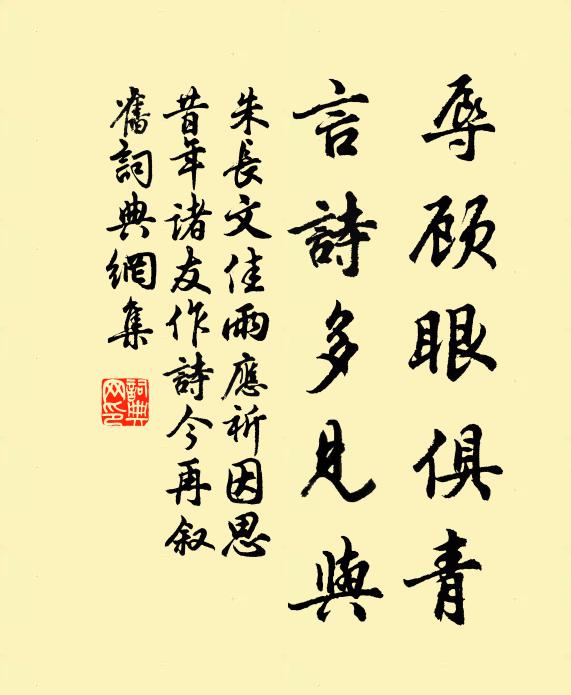 辱顾眼俱青
言詩多見與
朱長文佳雨應祈因思
昔年诸友作詩今再叙
舊詞典網集
詞典网印